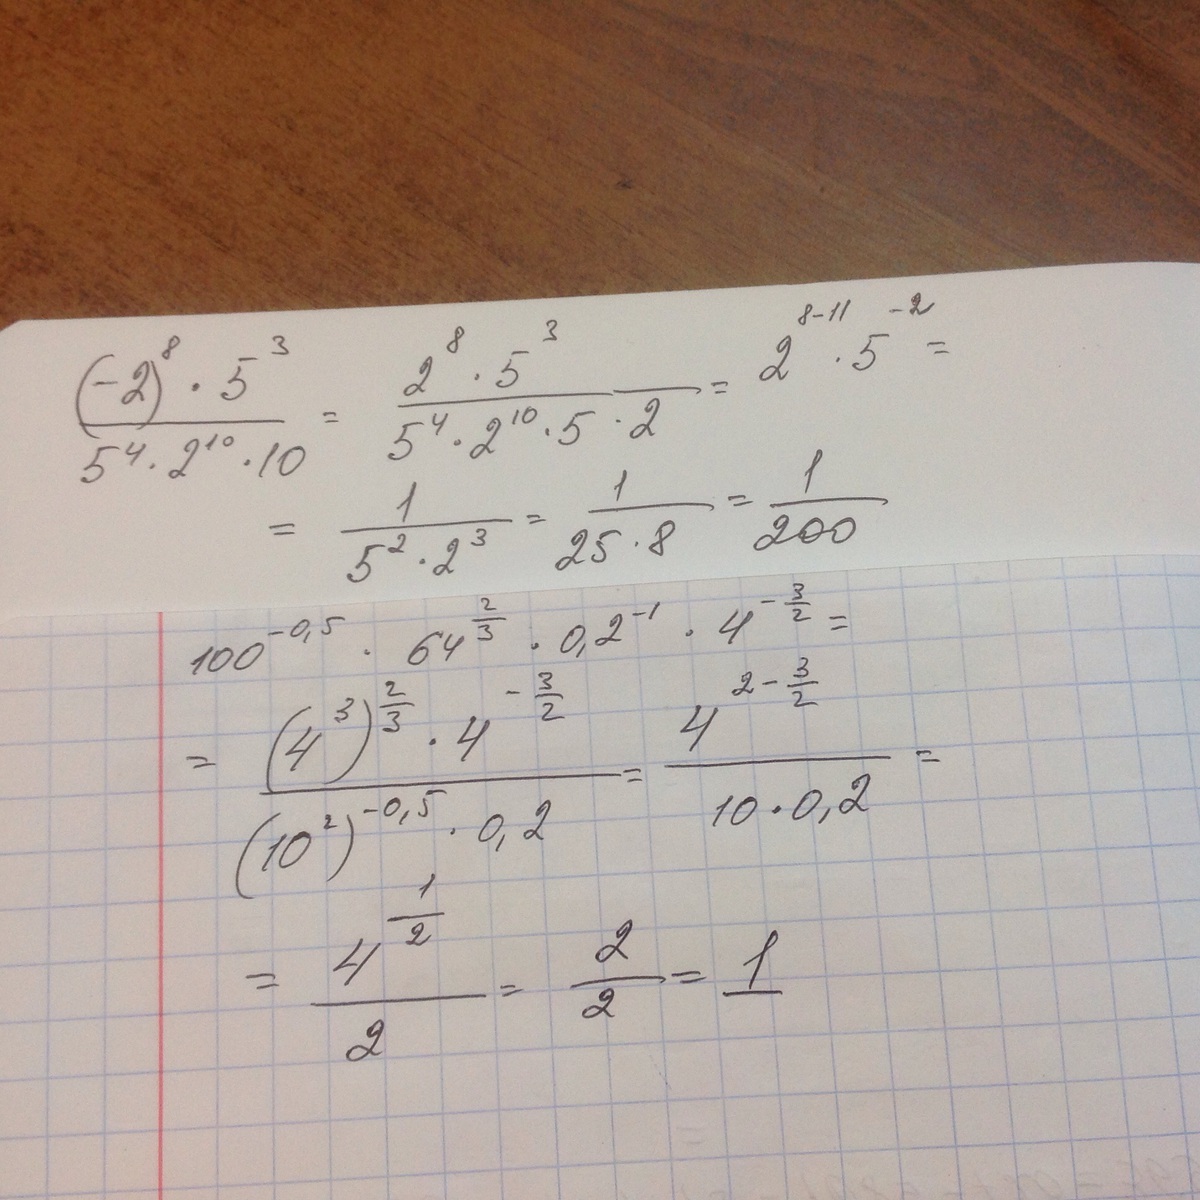 (-2)^8 · 5^3 / 5^4 · 2^10 · 10 = 2^8 · 5^3 / 5^4 · 2^10 · 5 · 2 = 2^(8-11) · 5^(-2) =
= 1 / 5^2 · 2^3 = 1 / 25 · 8 = 1 / 200
100^(-0,5) · 64^(2/3) · 0,2^(-1) · 4^(-3/2) =
= (4^3)^(2/3) · 4^(-3/2) / (10^2)^(-0,5) · 0,2 = 4^(2-3/2) / 10 · 0,2 =
= 4^(1/2) / 2 = 2 / 2 = 1